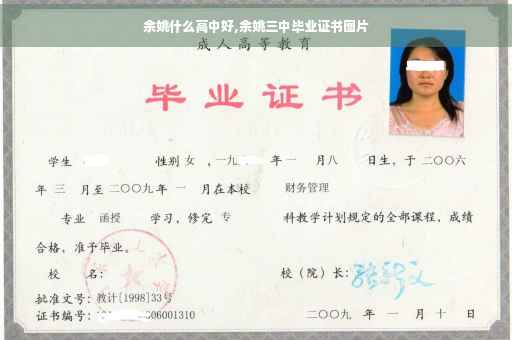 余姚什么高中好,余姚三中毕业证书图片
成人高等教育
毕业证书
学生 性别 女 ，一九 年 一 月八 日生，于 二〇〇六
年 三 月至 二〇〇九 年 一 月在本校 财务管理
专业 函授 学习，修完 专 科教学计划规定的全部课程，成绩
合格，准予毕业。
校 名： 校（院）长：
批准文号：教计[1998]33号
证书编号： 06001310 二〇〇九 年 一 月 十 日